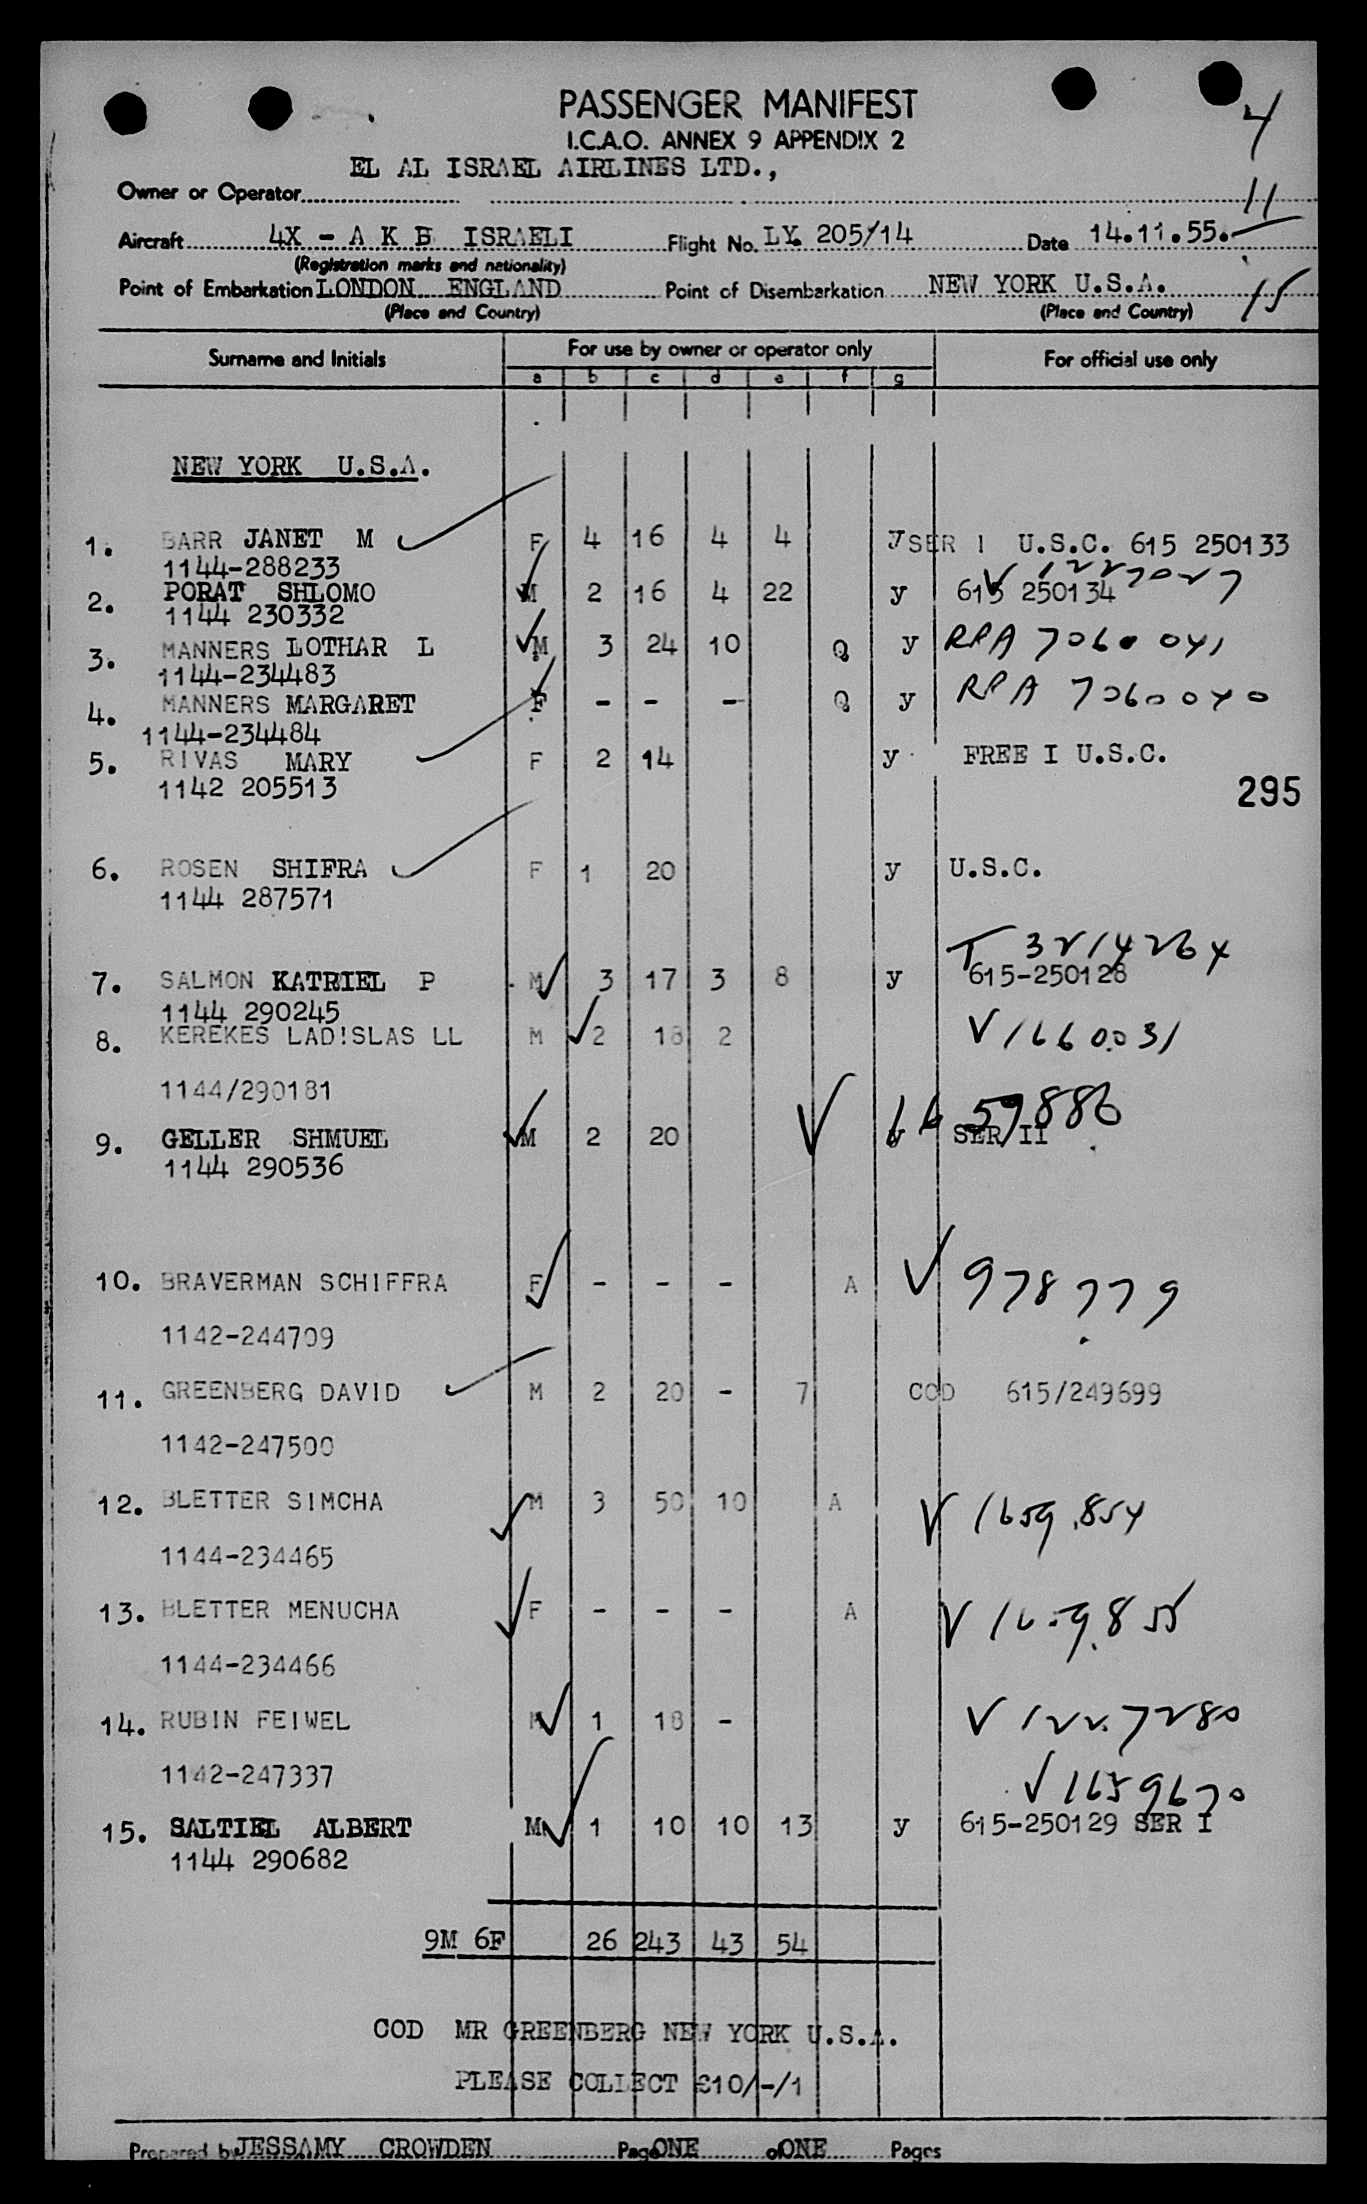 PASSENGER MANIFEST
4
I.C.A.O. ANNEX 9 APPENDIX 2
EL AL ISRAEL AIRLINES LTD.,
Owner or Operator
11
Aircraft 4X - A K B ISRAELI Flight No. LY. 205/14 Date 14.11.55.
(Registration marks and nationality)
Point of Embarkation LONDON ENGLAND Point of Disembarkation NEW YORK U.S.A. 15
(Place and Country) (Place and Country)
Surname and Initials For use by owner or operator only For official use only
a b c d e f g
NEW YORK U.S.A.
1. BARR JANET M F 4 16 4 4 y SER I U.S.C. 615 250133
1144-288233
V 1227027
2. PORAT SHLOMO M 2 16 4 22 y 615 250134
1144 230332
3. MANNERS LOTHAR L M 3 24 10 Q y RPA 7060041
1144-234483
4. MANNERS MARGARET F - - - Q y RPA 7060040
1144-234484
5. RIVAS MARY F 2 14 y FREE I U.S.C.
1142 205513
295
6. ROSEN SHIFRA F 1 20 y U.S.C.
1144 287571
T 3214264
7. SALMON KATRIEL P M 3 17 3 8 y 615-250128
1144 290245
8. KEREKES LADISLAS LL M 2 18 2 V 1660031
1144/290181
V 1659886
9. GELLER SHMUEL M 2 20 y SER II
1144 290536
10. BRAVERMAN SCHIFFRA F - - - A V 978779
1142-244709
11. GREENBERG DAVID M 2 20 - 7 COD 615/249699
1142-247500
12. BLETTER SIMCHA M 3 50 10 A V 1659854
1144-234465
13. BLETTER MENUCHA F - - - A V 1659855
1144-234466
14. RUBIN FEIWEL M 1 18 - V 1227280
1142-247337
V 1659670
15. SALTIEL ALBERT M 1 10 10 13 y 615-250129 SER I
1144 290682
9M 6F 26 243 43 54
COD MR GREENBERG NEW YORK U.S.A.
PLEASE COLLECT £10/-/1
Prepared by JESSAMY CROWDEN Page ONE of ONE Pages